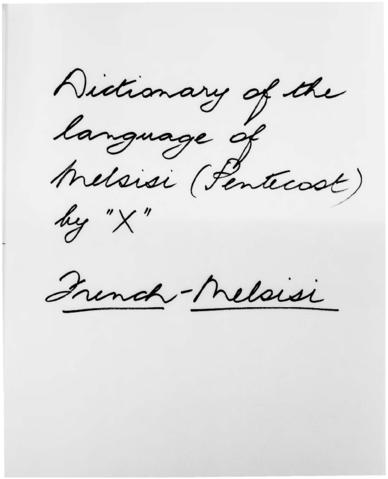 Dictionary of the
language of
Melsisi (Pentecost)
by "X"
French-Melsisi